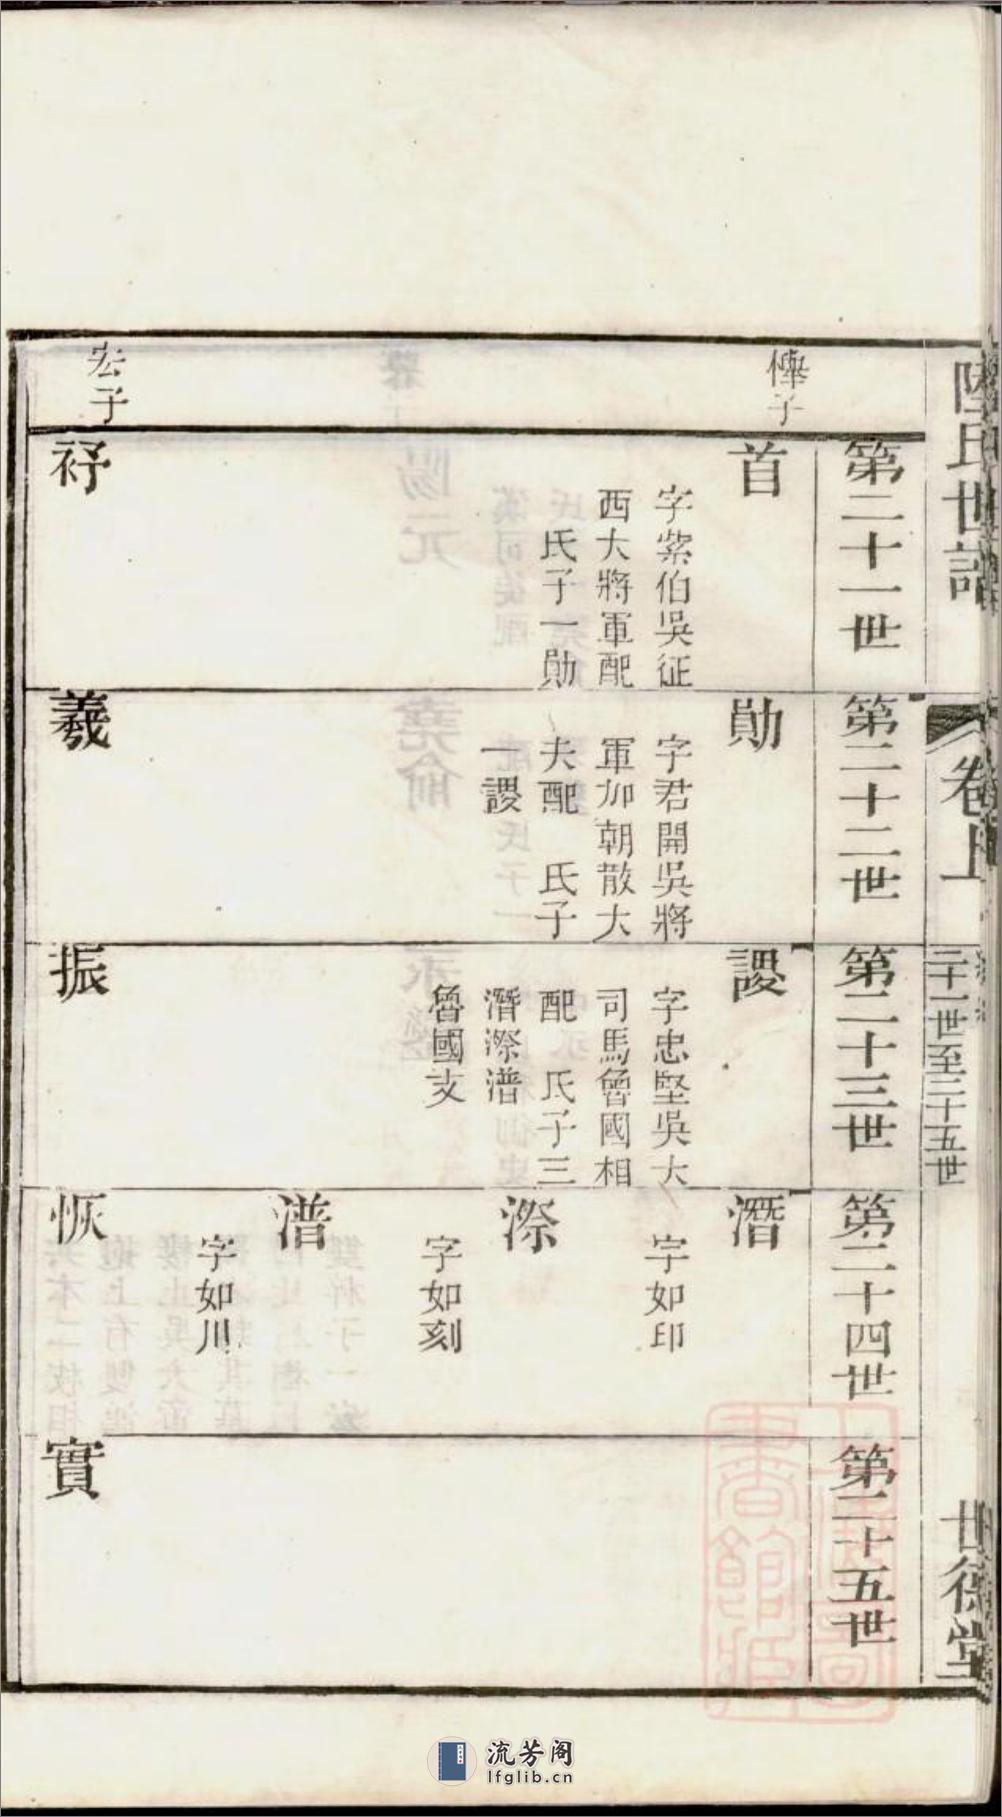 陸氏世譜
卷上
二十一世至二十五世
世德堂
第二十一世
第二十二世
第二十三世
第二十四世
第二十五世
子
首
字紫伯吳征
西大將軍配
氏子一勛
勛
字君開吳將
軍加朝散大
夫配 氏子
一謖
謖
字忠堅吳大
司馬魯國相
配 氏子三
潛漈潽
魯國支
潛
字如印
漈
字如刻
潽
字如川
宏子
羲
振
恢
實
流芳阁
lfglib.cn